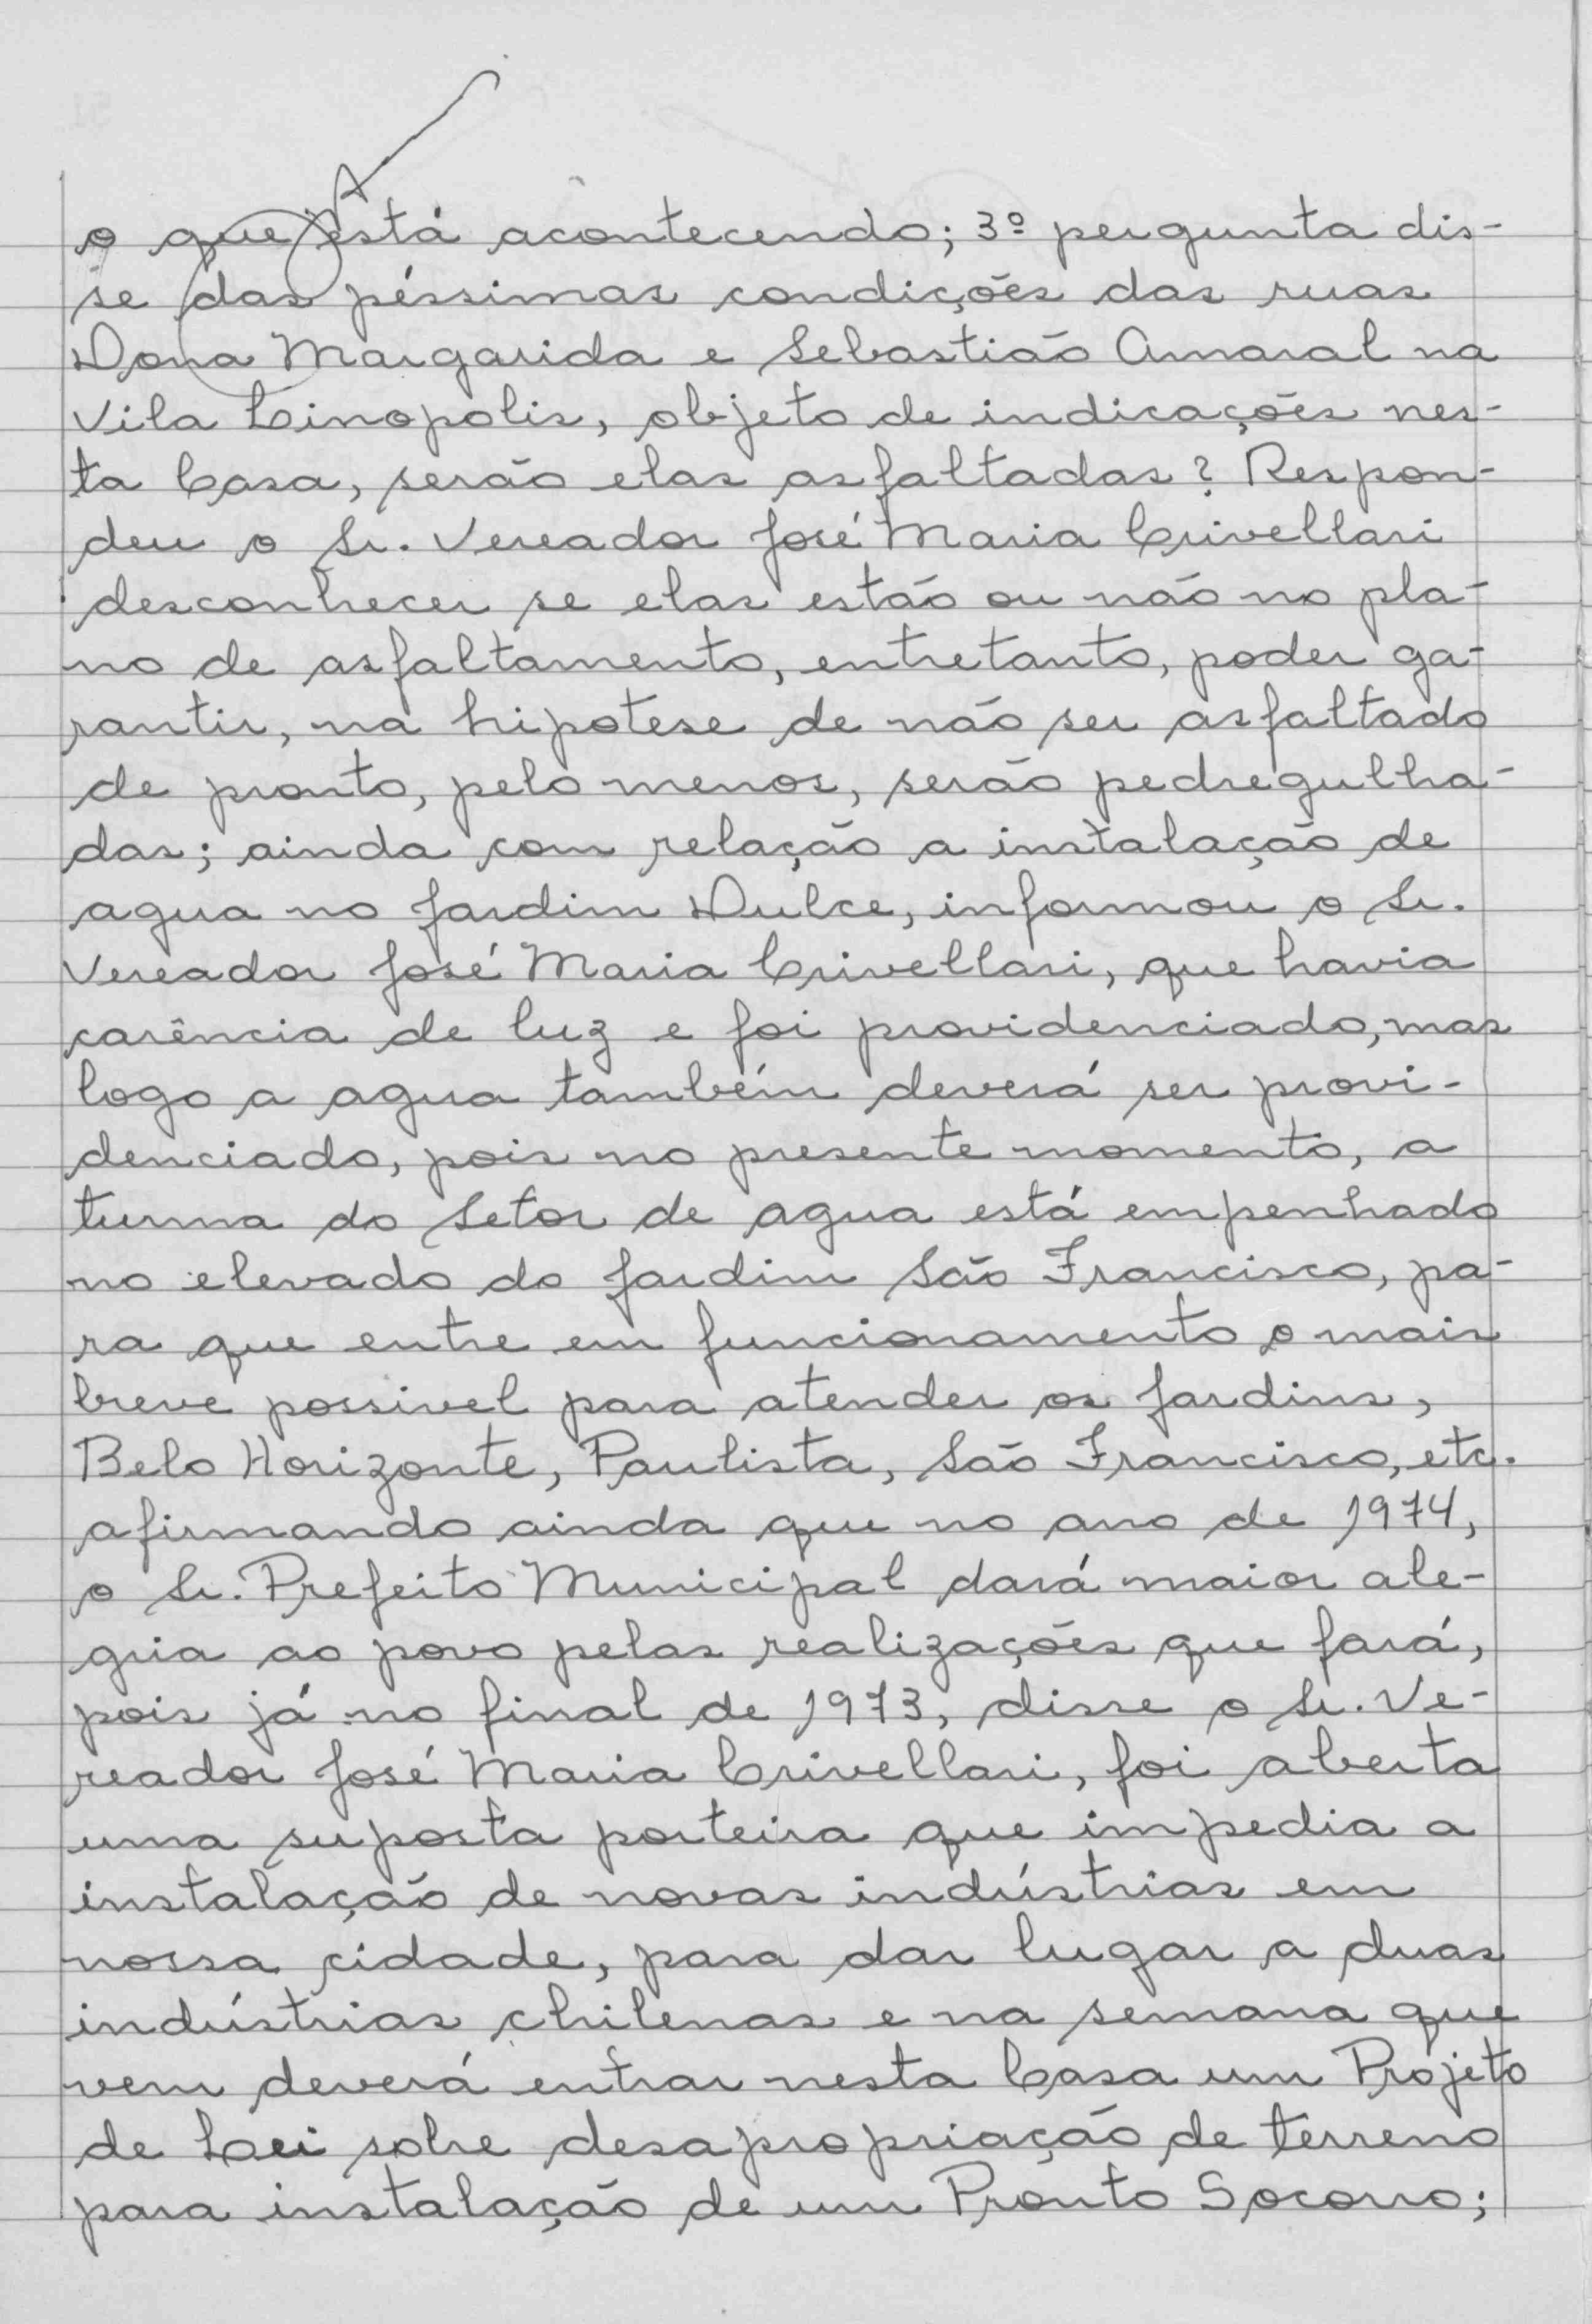 o que está acontecendo; 3º pergunta dis-
se das péssimas condições das ruas
Dona Margarida e Sebastião Amaral na
Vila Linopolis, objeto de indicações nes-
ta Casa, serão elas asfaltadas? Respon-
deu o Sr. Vereador José Maria Crivellari
desconhecer se elas estão ou não no pla-
no de asfaltamento, entretanto, poder ga-
rantir, na hipotese de não ser asfaltado
de pronto, pelo menos, serão pedregulha-
das; ainda com relação a instalação de
agua no Jardim Dulce, informou o Sr.
Vereador José Maria Crivellari, que havia
carência de luz e foi providenciado, mas
logo a agua também deverá ser provi-
denciado, pois no presente momento, a
turma do Setor de agua está empenhado
no elevado do Jardim São Francisco, pa-
ra que entre em funcionamento o mais
breve possivel para atender os Jardins,
Belo Horizonte, Paulista, São Francisco, etc.
afirmando ainda que no ano de 1974,
o Sr. Prefeito Municipal dará maior ale-
gria ao povo pelas realizações que fará,
pois já no final de 1973, disse o Sr. Ve-
reador José Maria Crivellari, foi aberta
uma suposta porteira que impedia a
instalação de novas indústrias em
nossa cidade, para dar lugar a duas
indústrias chilenas e na semana que
vem deverá entrar nesta Casa um Projeto
de Lei sobre desapropriação de terreno
para instalação de um Pronto Socorro;